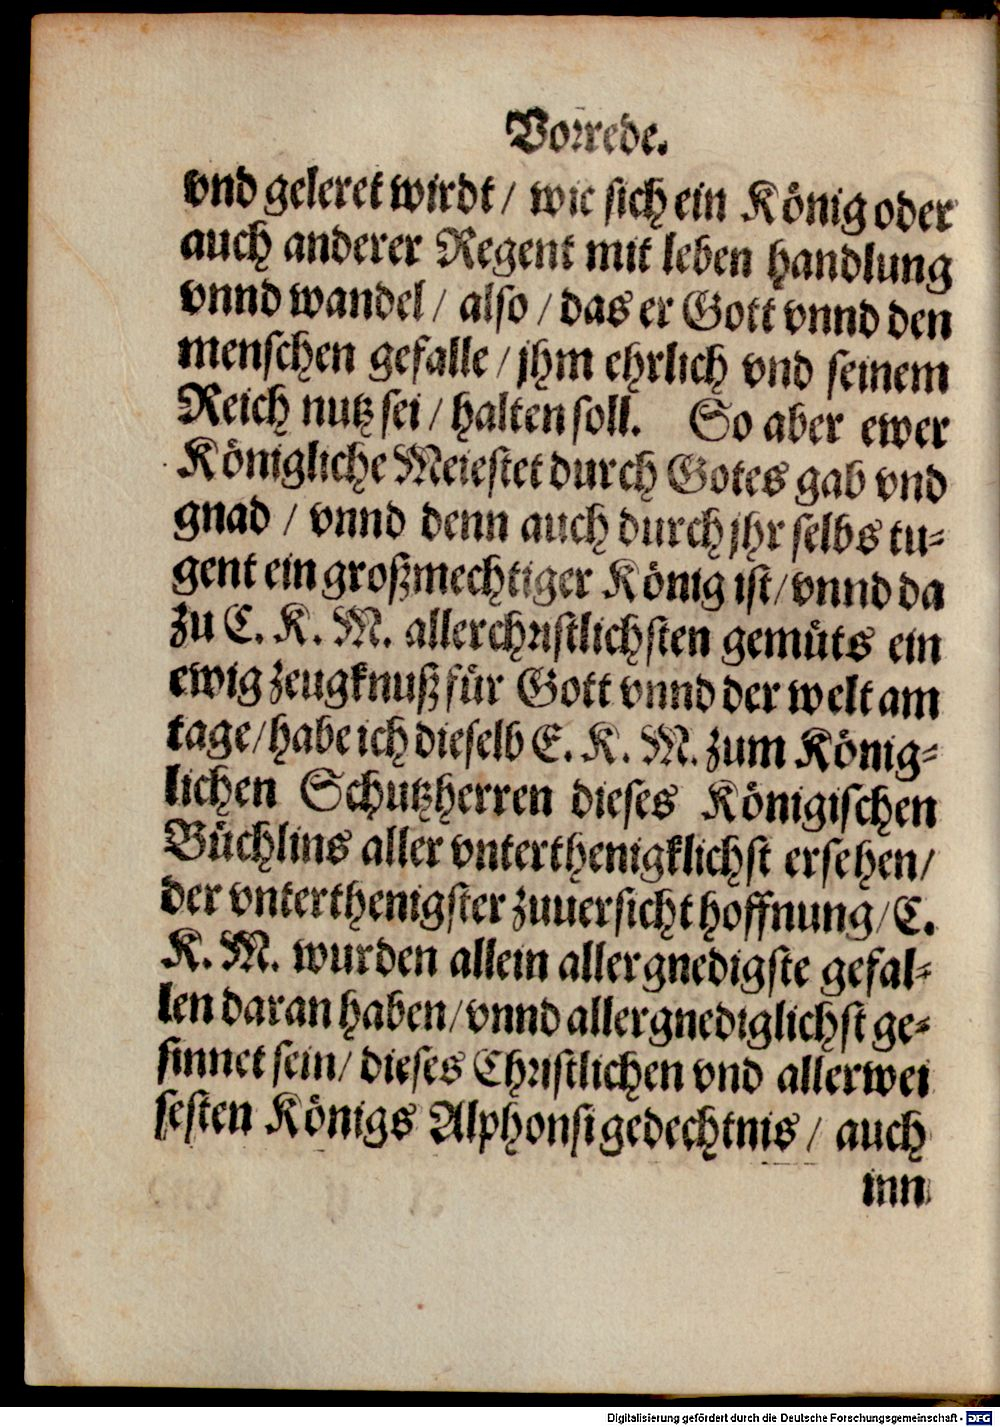 Vorrede.
vnd geleret wirdt / wie sich ein König oder
auch anderer Regent mit leben handlung
vnnd wandel / also / das er Gott vnnd den
menschen gefalle / jhm ehrlich vnd seinem
Reich nutz sei / halten soll. So aber ewer
Königliche Meiestet durch Gotes gab vnd
gnad / vnnd denn auch durch jhr selbs tu-
gent ein großmechtiger König ist / vnnd da
zu E. K. M. allerchristlichsten gemüts ein
ewig zeugknuß für Gott vnnd der welt am
tage / habe ich dieselb E. K. M. zum König-
lichen Schutzherren dieses Königischen
Büchlins aller vnterthenigklichst ersehen /
der vnterthenigster zuuersicht hoffnung / E.
K. M. wurden allein allergnedigste gefal-
len daran haben / vnnd allergnediglichst ge-
sinnet sein / dieses Christlichen vnd allerwei
sesten Königs Alphonsi gedechtnis / auch
inn
Digitalisierung gefördert durch die Deutsche Forschungsgemeinschaft - DFG